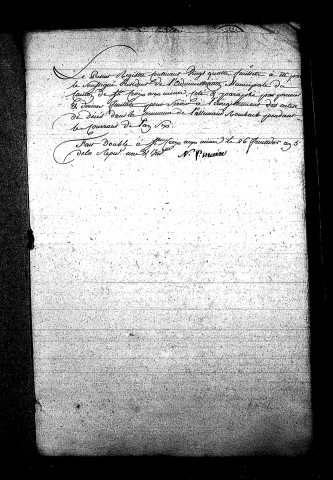 Le Présent Registre contenant Vingt quatre feuillets a été par
le soussigné Président de l'administration Municipale du
Canton de Ste Croix aux mines, coté & paraphé par premier
& dernier feuillet pour servir à l'enregistrement des actes
de décès dans la Commune de l'allemand Rombach pendant
le courant de l'an Six.
Fait Double à Ste Croix aux mines le 26 fructidor an 5
de la Repub. une & ind.